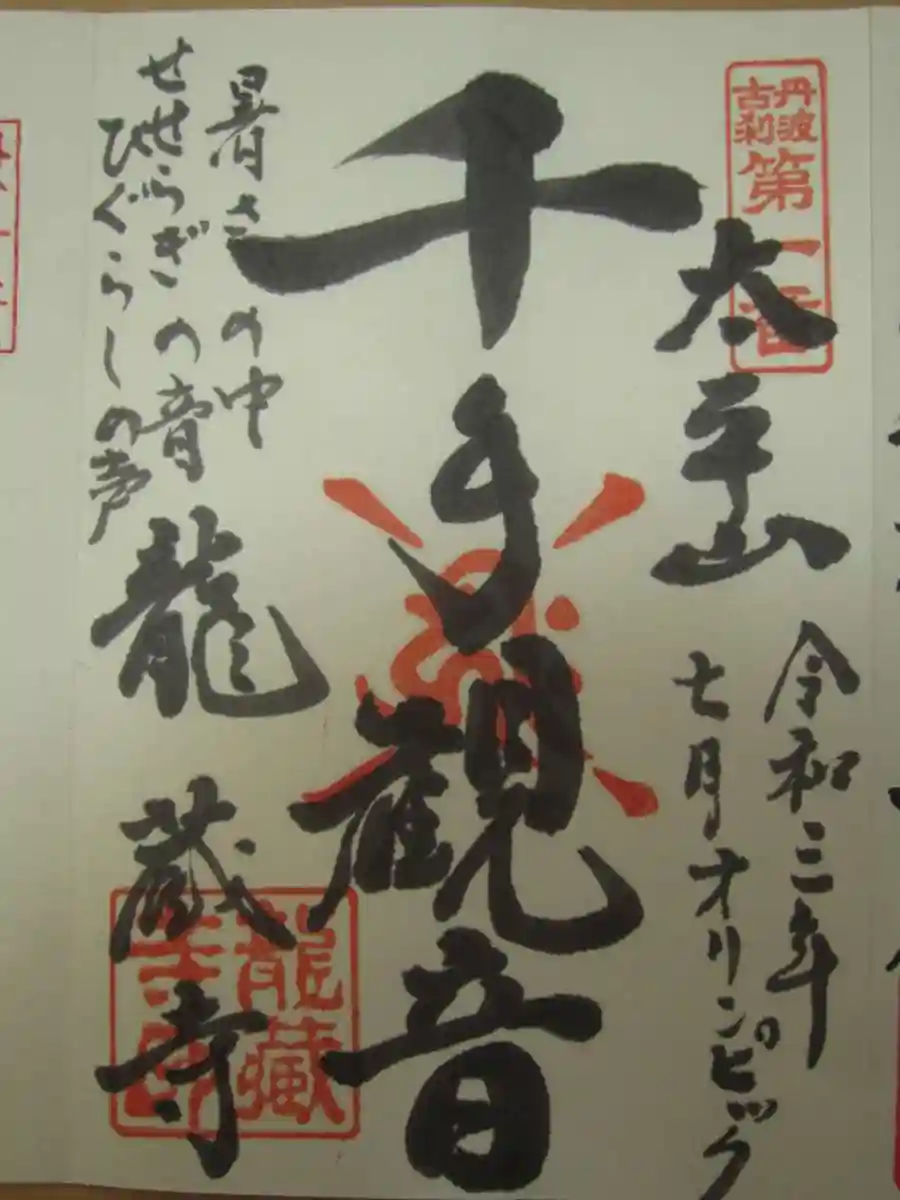 丹波
古刹
第一番
太平山
令和三年
七月オリンピック
千手観音
暑さの中
せせらぎの音
ひぐらしの声
龍蔵寺
龍藏
寺印